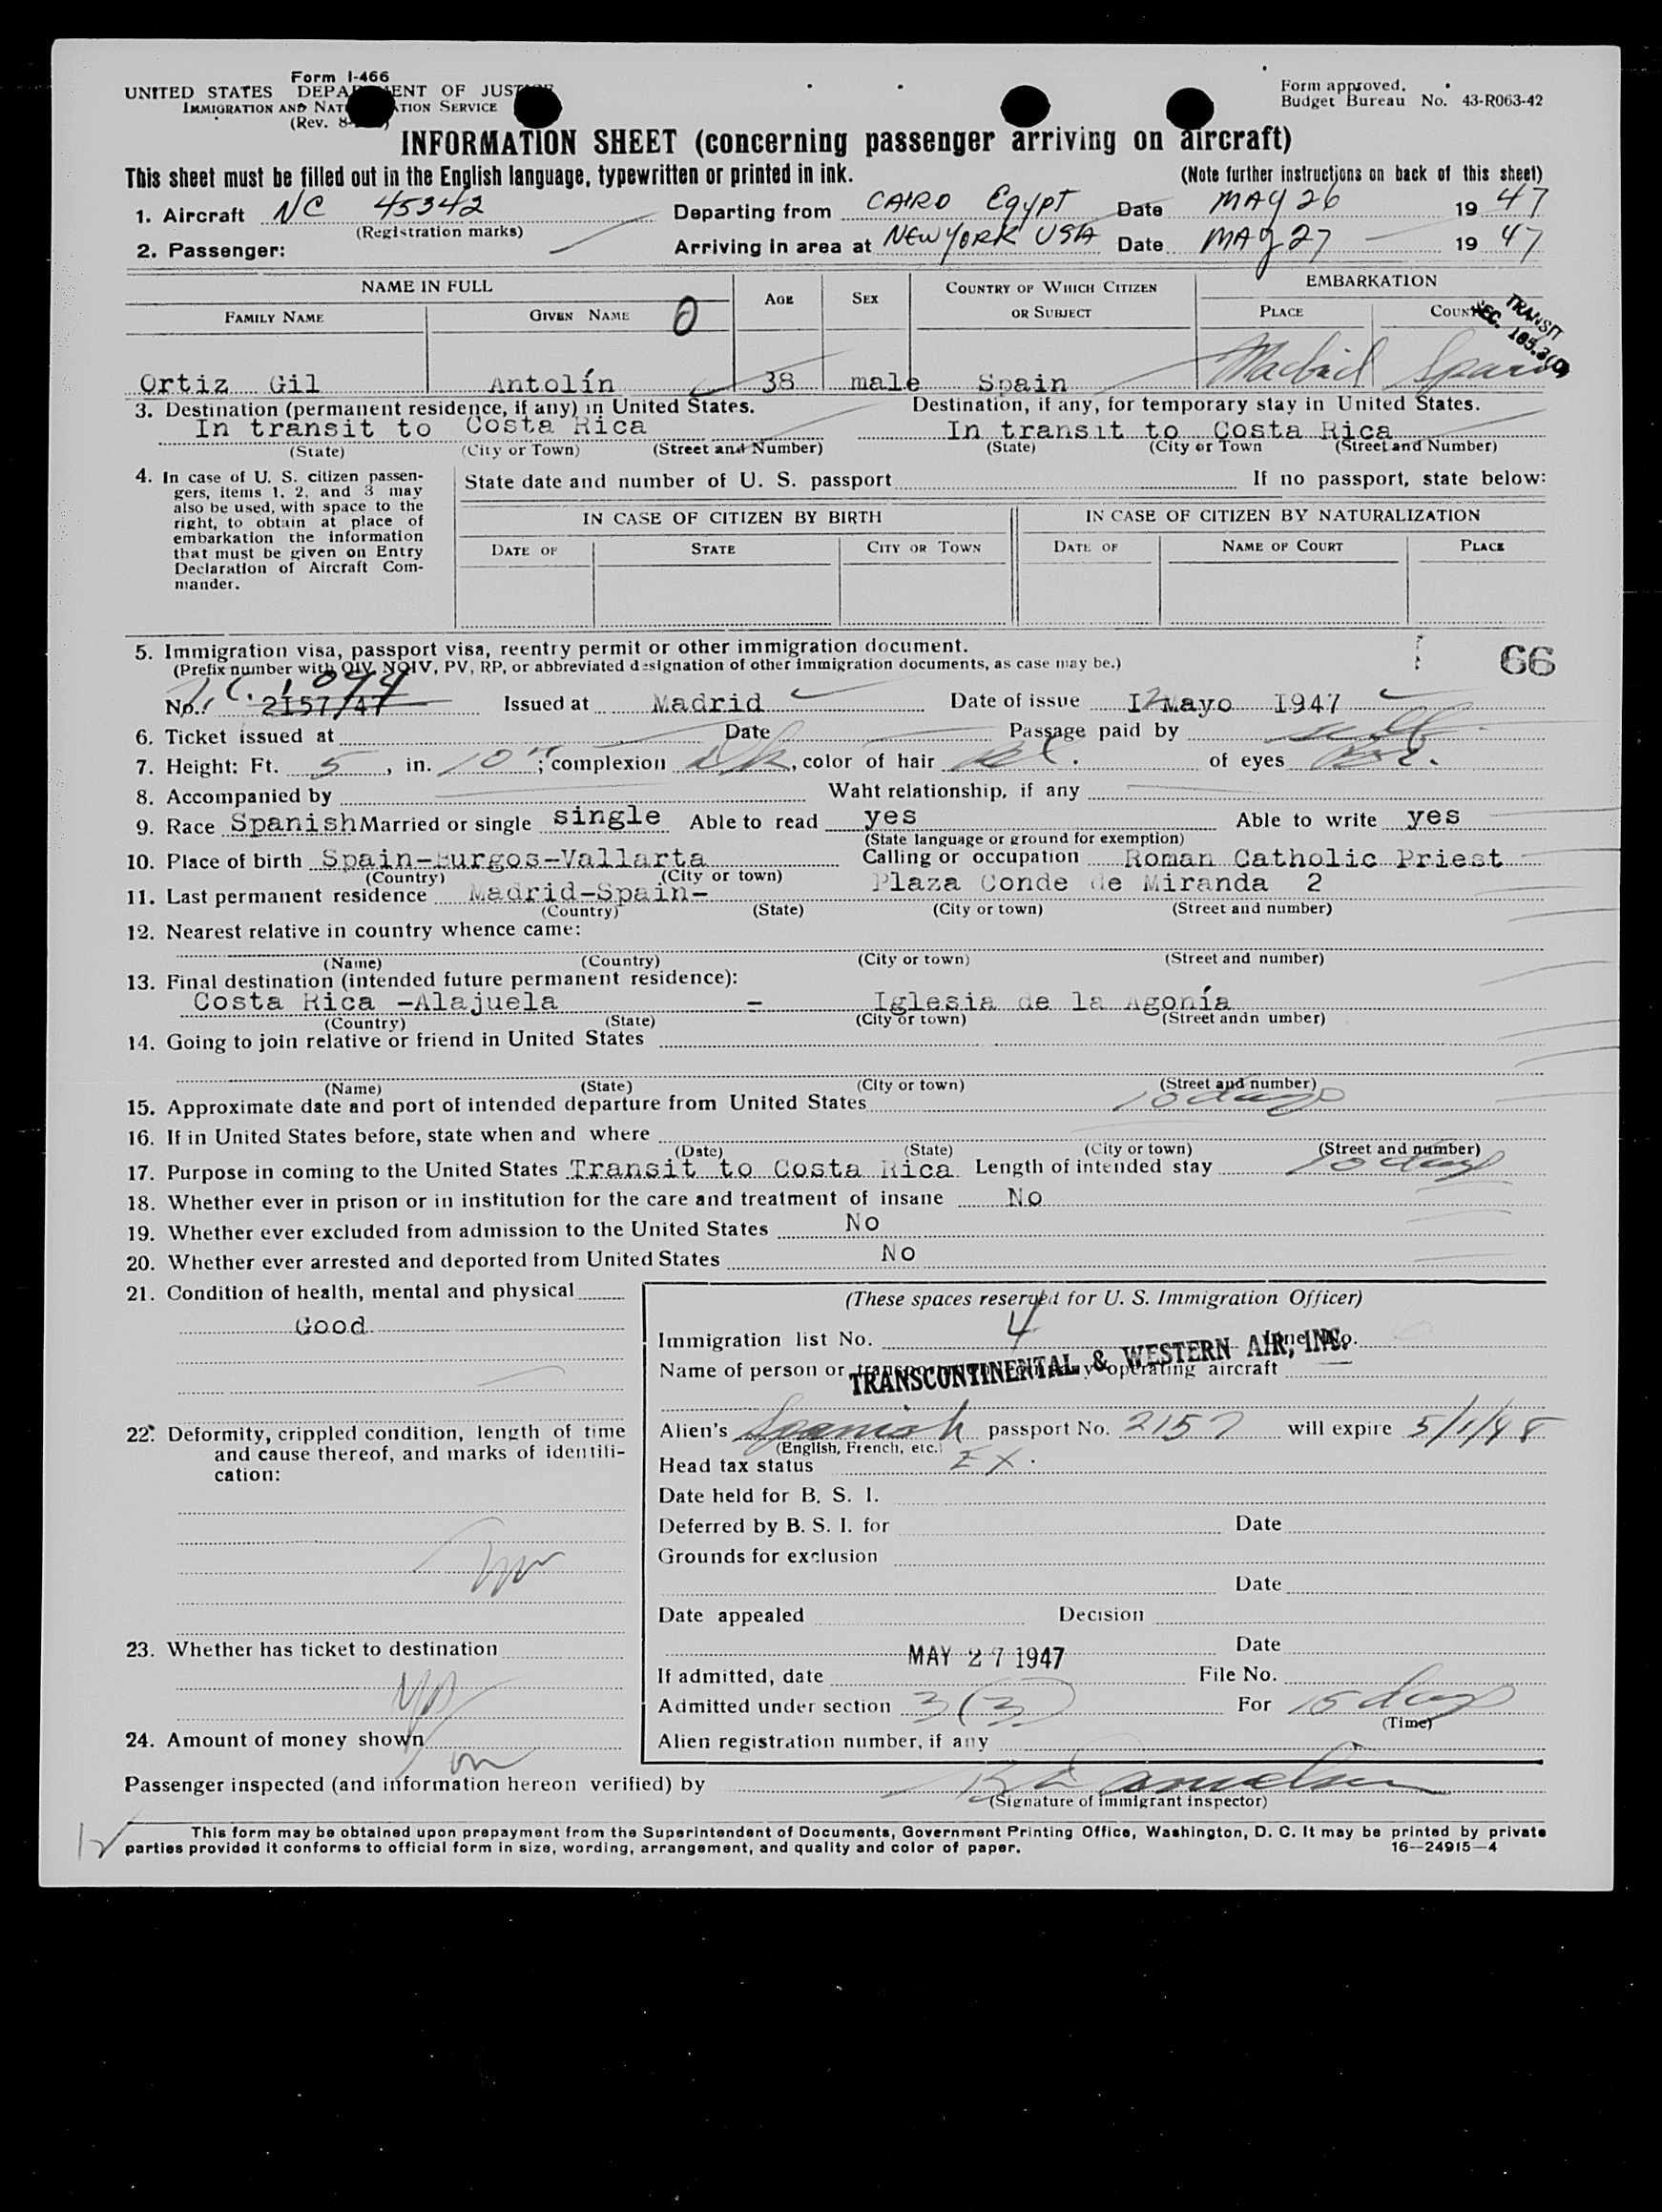 Form I-466
UNITED STATES DEPA ENT OF JUST
IMMIGRATION AND NAT TION SERVICE
(Rev. 8-
Form approved.
Budget Bureau No. 43-R063-42
INFORMATION SHEET (concerning passenger arriving on aircraft)
This sheet must be filled out in the English language, typewritten or printed in ink. (Note further instructions on back of this sheet)
1. Aircraft NC 45342 Departing from CAIRO Egypt Date MAY 26 19 47
(Registration marks)
2. Passenger: Arriving in area at NEW YORK USA Date MAY 27 19 47
NAME IN FULL AGE SEX COUNTRY OF WHICH CITIZEN OR SUBJECT EMBARKATION
FAMILY NAME GIVEN NAME PLACE COUN
TRANSIT
SEC. 105.3(
Ortiz Gil Antolín 38 male Spain Madrid Spain
3. Destination (permanent residence, if any) in United States. Destination, if any, for temporary stay in United States.
In transit to Costa Rica In transit to Costa Rica
(State) (City or Town) (Street and Number) (State) (City or Town (Street and Number)
4. In case of U. S. citizen passen-
gers, items 1, 2, and 3 may
also be used, with space to the
right, to obtain at place of
embarkation the information
that must be given on Entry
Declaration of Aircraft Com-
mander.
State date and number of U. S. passport If no passport, state below:
IN CASE OF CITIZEN BY BIRTH IN CASE OF CITIZEN BY NATURALIZATION
DATE OF STATE CITY OR TOWN DATE OF NAME OF COURT PLACE
5. Immigration visa, passport visa, reentry permit or other immigration document.
(Prefix number with QIV, NQIV, PV, RP, or abbreviated designation of other immigration documents, as case may be.)
66
No. 2157/47 Issued at Madrid Date of issue 12 Mayo 1947
6. Ticket issued at Date Passage paid by self
7. Height: Ft. 5, in. 10"; complexion dk, color of hair bl. of eyes br.
8. Accompanied by Waht relationship, if any
9. Race Spanish Married or single single Able to read yes Able to write yes
(State language or ground for exemption)
10. Place of birth Spain-Burgos-Vallarta Calling or occupation Roman Catholic Priest
(Country) (City or town)
11. Last permanent residence Madrid-Spain- Plaza Conde de Miranda 2
(Country) (State) (City or town) (Street and number)
12. Nearest relative in country whence came:
(Name) (Country) (City or town) (Street and number)
13. Final destination (intended future permanent residence):
Costa Rica -Alajuela - Iglesia de la Agonía
(Country) (State) (City or town) (Street andn umber)
14. Going to join relative or friend in United States
(Name) (State) (City or town) (Street and number)
15. Approximate date and port of intended departure from United States 10 days
16. If in United States before, state when and where
(Date) (State) (City or town) (Street and number)
17. Purpose in coming to the United States Transit to Costa Rica Length of intended stay 10 days
18. Whether ever in prison or in institution for the care and treatment of insane No
19. Whether ever excluded from admission to the United States No
20. Whether ever arrested and deported from United States No
21. Condition of health, mental and physical
Good
22. Deformity, crippled condition, length of time
and cause thereof, and marks of identifi-
cation:
23. Whether has ticket to destination
yes
24. Amount of money shown
(These spaces reserved for U. S. Immigration Officer)
Immigration list No. 4 Line No.
Name of person or operating aircraft
TRANSCONTINENTAL & WESTERN AIR, INC.
Alien's Spanish passport No. 2157 will expire 5/1/48
(English, French, etc.)
Head tax status EX.
Date held for B. S. I.
Deferred by B. S. I. for Date
Grounds for exclusion
Date
Date appealed Decision
Date
MAY 27 1947
If admitted, date File No.
Admitted under section 3(3) For 15 days
(Time)
Alien registration number, if any
Passenger inspected (and information hereon verified) by
(Signature of immigrant inspector)
This form may be obtained upon prepayment from the Superintendent of Documents, Government Printing Office, Washington, D. C. It may be printed by private
parties provided it conforms to official form in size, wording, arrangement, and quality and color of paper. 16—24915—4